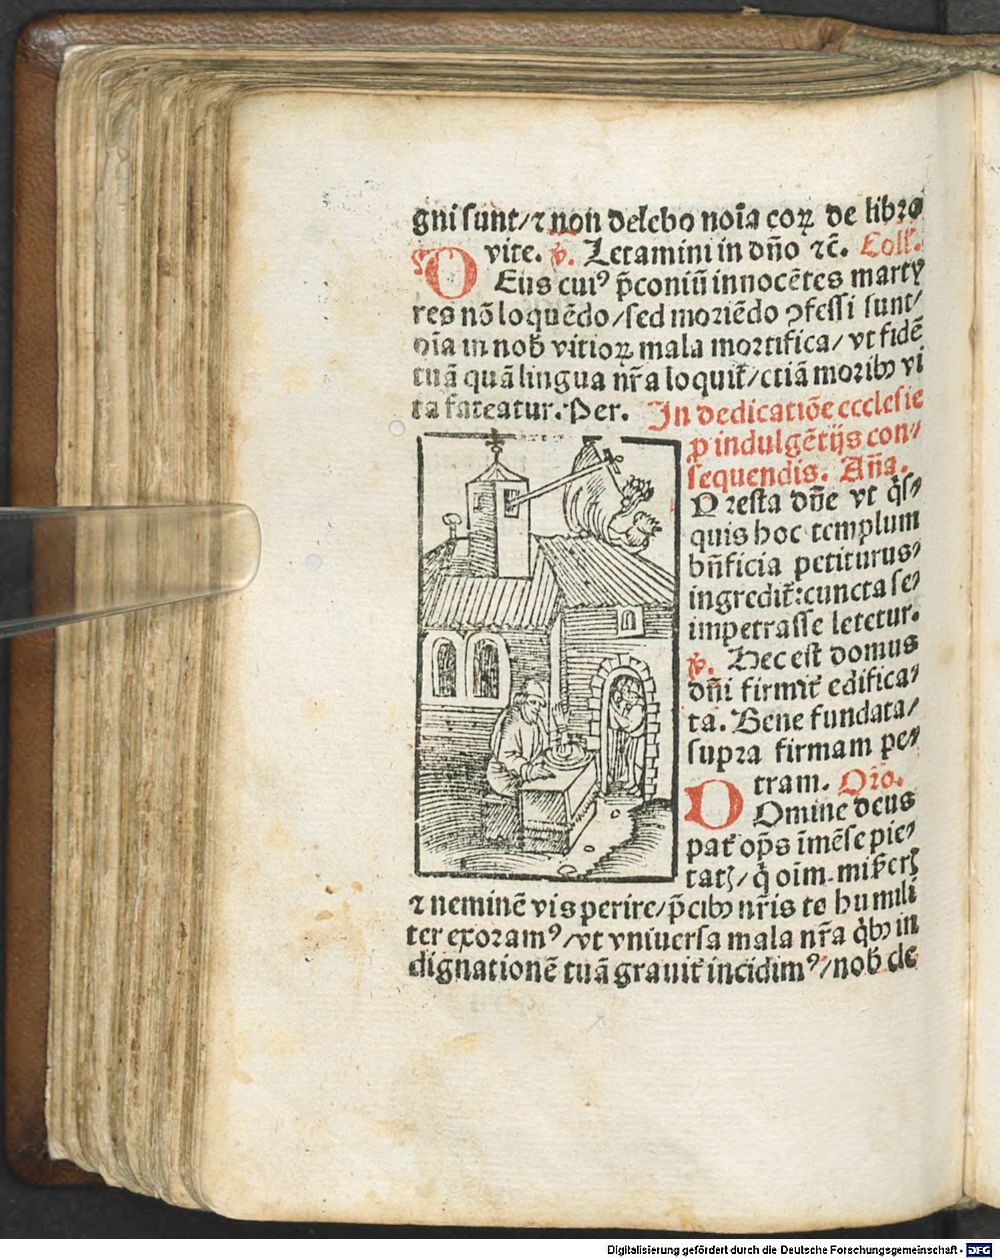 gni sunt/ ⁊ non delebo noīa eoꝝ de libro
vite. ℣. Letamini in dn̄o ⁊c̄. Coll'.
DEus cuiꝰ p̄coniū innocētes marty
res nō loquēdo/sed moriēdo ꝯfessi sunt/
oīa in nob̄ vitioꝝ mala mortifica/ vt fidē
tuā quā lingua nr̄a loquit̄/etiā moribꝫ vi
ta fateatur. Per. In dedicatiōe ecclesie
ꝓ indulgētijs con⸗
sequendis. An̄a.
Presta dn̄e vt q̇s⸗
quis hoc templum
bn̄ficia petiturus⸗
ingredit̄: cuncta se⸗
impetrasse letetur.
℣. Hec est domus
dn̄i firmit̄ edifica⸗
ta. Bene fundata/
supra firmam pe⸗
tram. Or̄o.
DOmine deus
pat̄ op̄s īmēse pie⸗
tatꝭ/ q̇ oīm miẜerꝭ
⁊ neminē vis perire/p̄cibꝫ nr̄is te humili
ter exoramꝰ/vt vniuersa mala nr̄a q̇bꝫ in
dignationē tuā grauit̄ incidimꝰ/nob̄ de
Digitalisierung gefördert durch die Deutsche Forschungsgemeinschaft - DFG